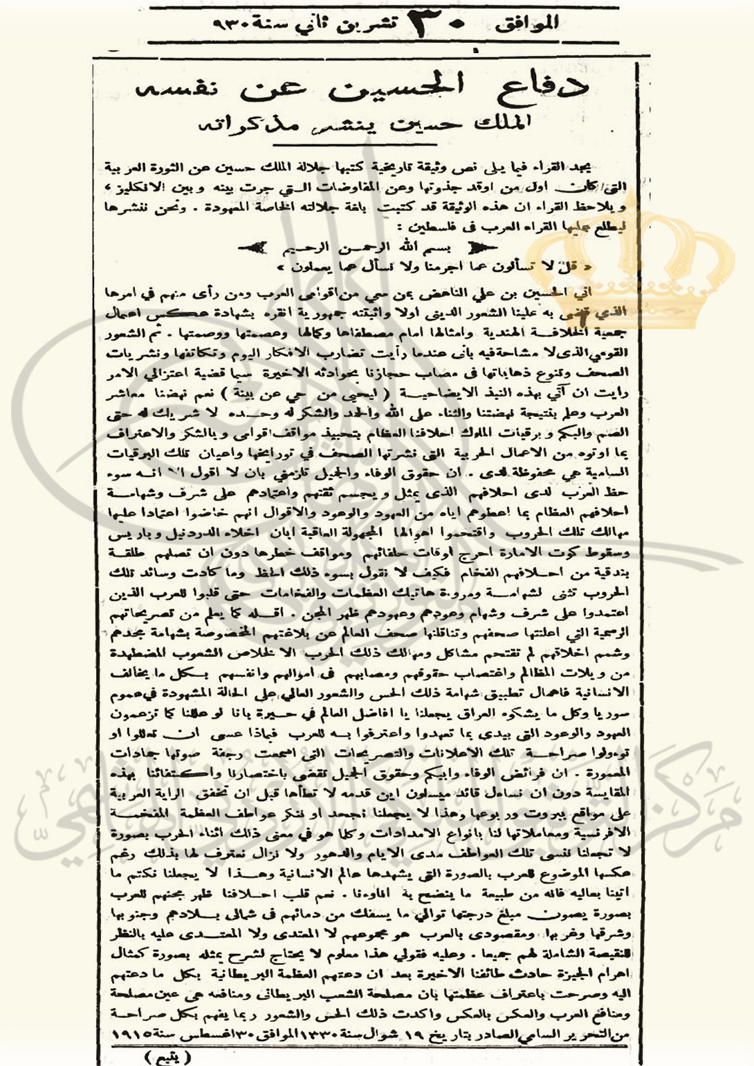 الموافق ٣٠ تشرين ثاني سنة ٩٣٠
دفاع الحسين عن نفسه
الملك حسين ينشر مذكراته
يجد القراء فيما يلي نص وثيقة تاريخية كتبها جلالة الملك حسين عن الثورة العربية
التي كان اول من اوقد جذوتها وعن المفاوضات التي جرت بينه وبين الانكليز ،
ويلاحظ القراء ان هذه الوثيقة قد كتبت بلغة جلالته الخاصة المعهودة . ونحن ننشرها
ليطلع عليها القراء العرب في فلسطين :
بسم الله الرحمن الرحيم
« قل لا تسألون عما اجرمنا ولا نسأل عما يعملون »
اني الحسين بن علي الناهض بمن معي من اقوامى العرب ومن رأى منهم في امرها
الذي قضى به علينا الشعور الديني اولا واثبتته جمهورية انقره بشهادة عكس اعمال
جمعية الخلافة الهندية وامثالها امام مصطفاها وكمالها وعصمتها ووصمتها . ثم الشعور
القومي الذى لا مشاحة فيه بانى عندما رأيت تضارب الافكار اليوم وتكاتفها ونشريات
الصحف وتنوع ذهاباتها فى مصاب حجازنا بحوادثه الاخيرة سيما قضية اعتزالي الامر
رايت ان آتي بهذه النبذ الايضاحية ( ليحيى من حي عن بينة ) نعم نهضنا معاشر
العرب وعلم بنتيجة نهضتنا والثناء على الله والحمد والشكر له وحده لا شريك له حتى
الصم والبكم وبرقيات الملوك احلافنا العظام بتحبيذ مواقف اقوامى وبالشكر والاعتراف
بما اوتوه من الاعمال الحربية التي نشرتها الصحف في تورايخها واعيان تلك البرقيات
السامية هي محفوظة لدى . ان حقوق الوفاء والجميل تلزمني بان لا اقول الا انه سوء
حظ العرب لدى احلافهم الذى يمثل ويجسم ثقتهم واعتمادهم على شرف وشهامة
احلافهم العظام بما اعطوهم اياه من العهود والوعود والاقوال انهم خاضوا اعتمادا عليها
مهالك تلك الحروب واقتحموا اهوالها المجهولة العاقبة ايان اخلاء الدردنيل وباريس
وسقوط كوت الامارة احرج اوقات حلفائهم ومواقف خطرها دون ان تصلهم طلقة
بندقية من احلافهم الفخام فكيف لا نقول بسوء ذلك الحظ وما كادت وسائد تلك
الحروب تثنى لشهامة ومروءة هاتيك العظمات والفخامات حتى قلبوا للعرب الذين
اعتمدوا على شرف وشهام وعودهم وعهودهم ظهر المجن . اقله كما يعلم من تصريحاتهم
الرسمية التي اعلنتها صحفهم وتناقلتها صحف العالم عن بلاغتهم المخصوصة بشهامة مجدهم
وشمم اخلاقهم لم تقتحم مشاكل ومهالك ذلك الحرب الا لخلاص الشعوب المضطهدة
من ويلات المظالم واغتصاب حقوقهم ومصابهم فى اموالهم وانفسهم بكل ما يخالف
الانسانية فاهمال تطبيق شهامة ذلك الحس والشعور العالي على الحالة المشهودة في عموم
سوريا وكل ما يشكوه العراق يجعلنا يا افاضل العالم في حيرة بانا لو عللنا كما تزعمون
العهود والوعود التي بيدى بما تعهدوا واعترفوا به للعرب فبماذا عسى ان تعللوا او
توءولوا صراحة تلك الاعلانات والتصريحات التي اسمعت رجفة صوتها جمادات
المعمورة . ان فرائض الوفاء وابيكم وحقوق الجميل تقضى باختصارنا واكتفائنا بهذه
المقايسة دون ان نسأل قائد ميسلون اين قدمه لا تطأها قبل ان تخفق الراية العربية
على مواقع بيروت وربوعها وهذا لا يجعلنا نجحد او ننكر عواطف العظمة المفخمة
الافرنسية ومعاملاتها لنا بانواع الامدادات وكلما هو في معنى ذلك اثناء الحرب بصورة
لا تجعلنا ننسى تلك العواطف مدى الايام والدهور ولا نزال نعترف لها بذلك رغم
عكسها الموضوع للعرب بالصورة التي يشهدها عالم الانسانية وهذا لا يجعلنا نكتم ما
اتينا بعاليه فانه من طبيعة ما ينضح به اناءونا . نعم قلب احلافنا ظهر مجنهم للعرب
بصورة يصون مبلغ درجتها توالي ما يسفك من دمائهم في شمالى بلادهم وجنوبها
وشرقها وغربها ومقصودى بالعرب هو مجموعهم لا المعتدى ولا المعتدى عليه بالنظر
للنقيصة الشاملة لهم جميعا . وعليه فقولي هذا معلوم لا يحتاج لشرح يمثله بصورة كمثال
اهرام الجيزة حادث طائفنا الاخيرة بعد ان دعتهم العظمة البريطانية بكل ما دعتهم
اليه وصرحت باعتراف عظمتها بان مصلحة الشعب البريطانى ومنافعه هى عين مصلحة
ومنافع العرب والعكس بالعكس واكدت ذلك الحس والشعور ربما يفهم بكل صراحة
من التحرير السامي الصادر بتاريخ ١٩ شوال سنة ١٣٣٠ الموافق ٣٠ اغسطس سنة ١٩١٥
( يتبع )